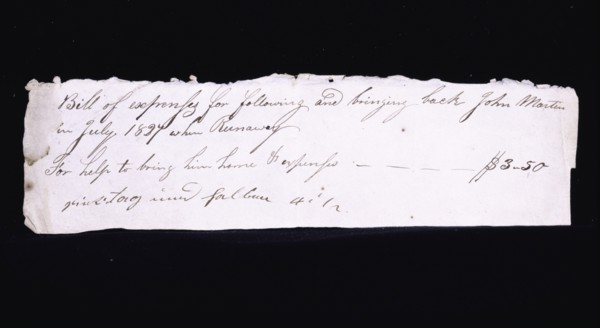 Bill of expenses for following and bringing back John Martin
in July 1827 when Runaway
For help to bring him home & expenses - - - - $3-50